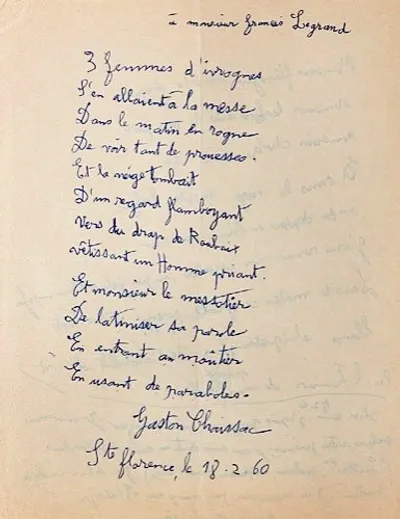 à monsieur francis Legrand
3 femmes d'ivrognes
S'en allaient à la messe
Dans le matin en rogne
De voir tant de prouesses.
Et la neige tombait
D'un regard flamboyant
Vers du drap de Roubaix
vêtissant un Homme priant.
Et monsieur le messetier
De latiniser sa parole
En entrant au moûtier
En usant de paraboles.
Gaston Chaissac
Ste florence, le 18.2.60